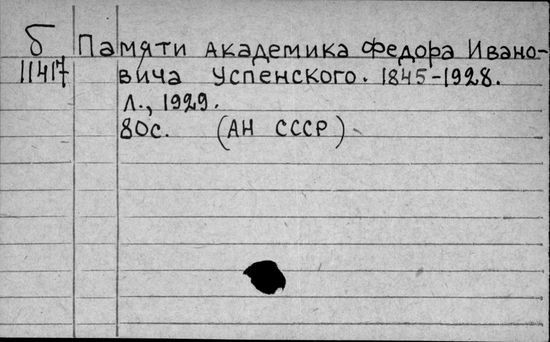 б Памяти академика Федора Ивано-
11417 вича Успенского. 1845-1928.
Л., 1929.
80с. (АН СССР)